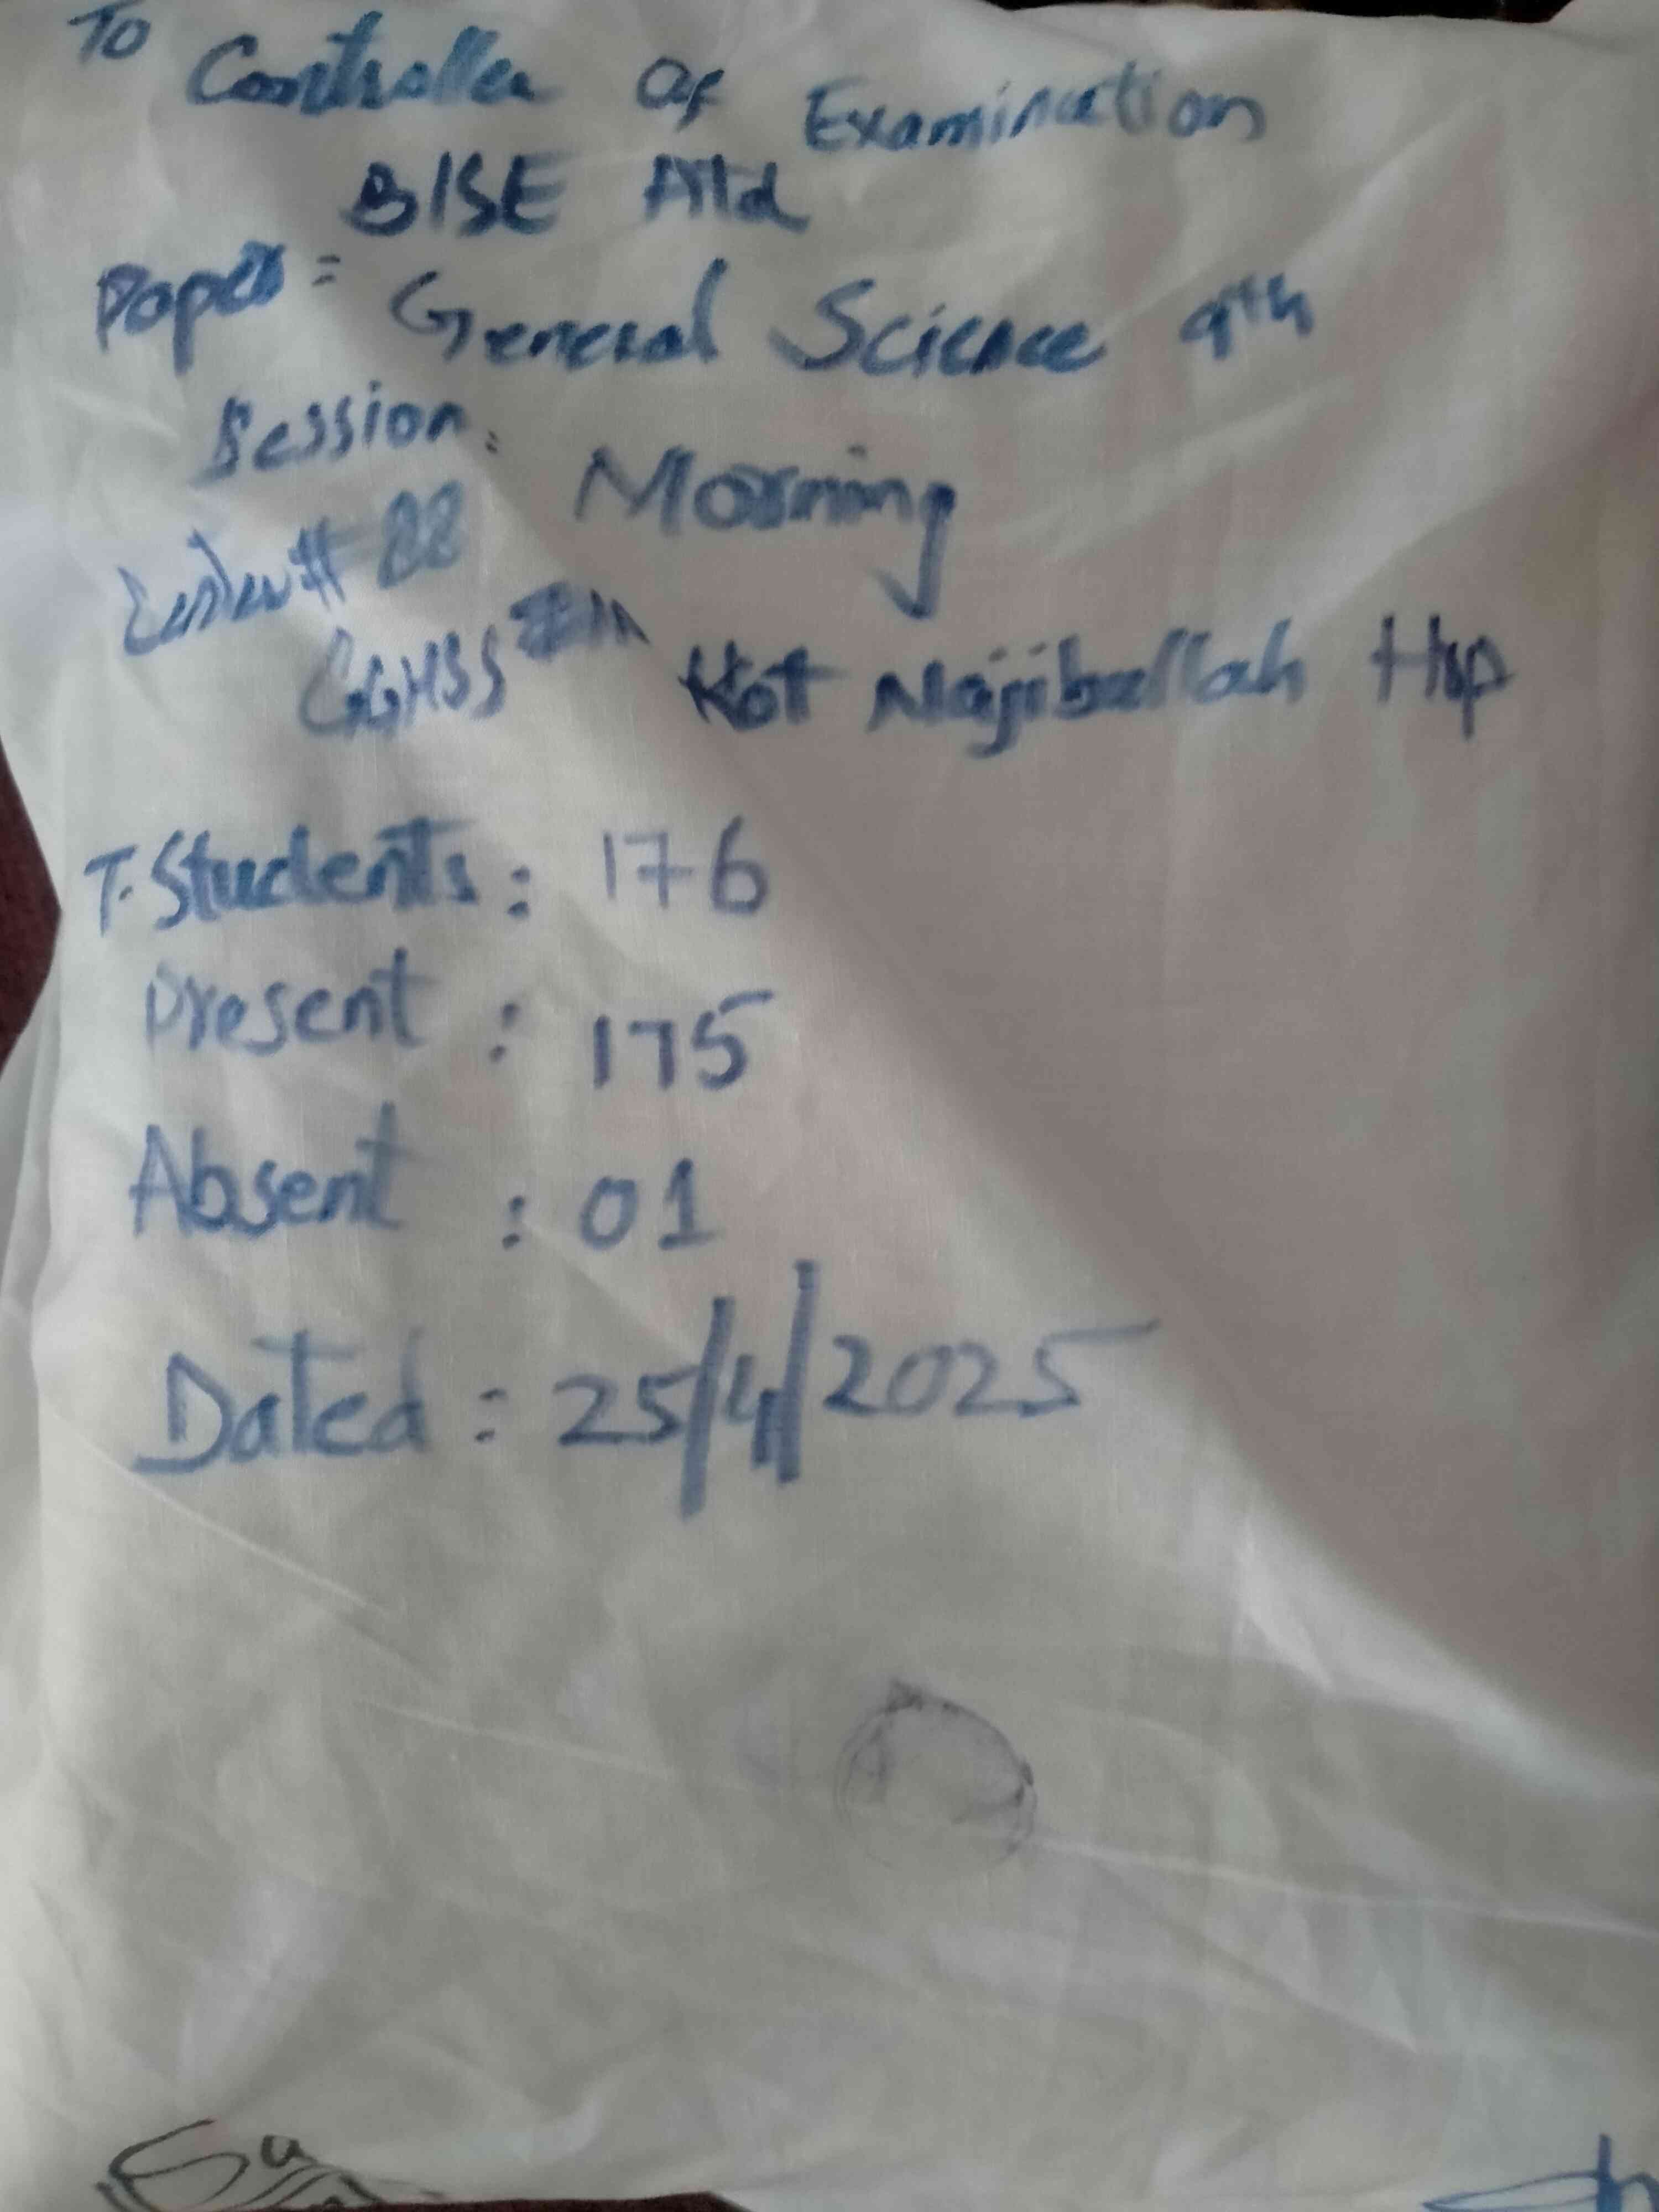 To
Controller of Examination
BISE Atd
Paper = General Science 9th
Session: Morning
Center # 22
GGHSS Kot Najibullah Hrp
T. Students : 176
Present : 175
Absent : 01
Dated : 25/4/2025